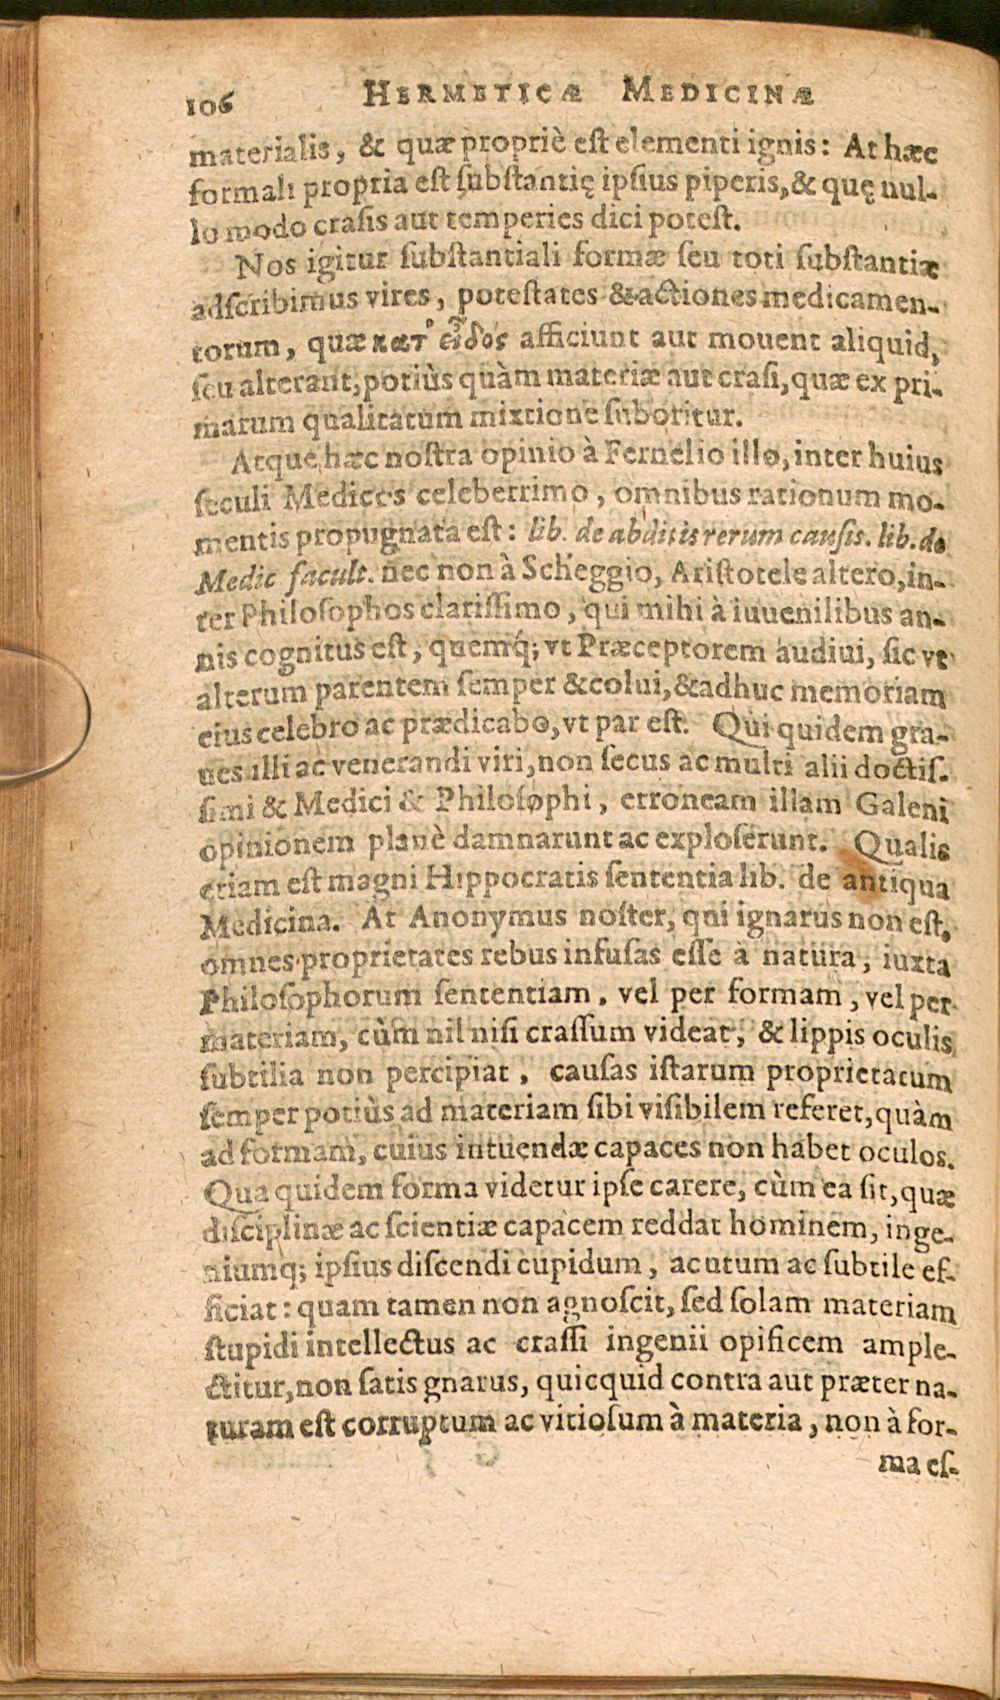 106 HERMETICÆ MEDICINÆ
materialis, & quæ propriè est elementi ignis: At hæc
formali propria est substantię ipsius piperis, & quę nul-
lo modo crasis aut temperies dici potest.
Nos igitur substantiali formæ seu toti substantiæ
adscribimus vires, potestates & actiones medicamen-
torum, quæ κατ' εἶδος afficiunt aut mouent aliquid,
seu alterant, potiùs quàm materiæ aut crasi, quæ ex pri-
marum qualitatum mixtione suboritur.
Atque hæc nostra opinio à Fernelio illo, inter huius
seculi Medicos celeberrimo, omnibus rationum mo-
mentis propugnata est: lib. de abditis rerum causis. lib. de
Medic facult. nec non à Scheggio, Aristotele altero, in-
ter Philosophos clarissimo, qui mihi à iuuenilibus an-
nis cognitus est, quemq́; vt Præceptorem audiui, sic vt
alterum parentem semper & colui, & adhuc memoriam
eius celebro ac prædicabo, vt par est. Qui quidem gra-
ues illi ac venerandi viri, non secus ac multi alii doctis-
simi & Medici & Philosophi, erroneam illam Galeni
opinionem planè damnarunt ac exploserunt. Qualis
etiam est magni Hippocratis sententia lib. de antiqua
Medicina. At Anonymus noster, qui ignarus non est,
omnes proprietates rebus infusas esse à natura, iuxta
Philosophorum sententiam, vel per formam, vel per
materiam, cùm nil nisi crassum videat, & lippis oculis
subtilia non percipiat, causas istarum proprietatum
semper potiùs ad materiam sibi visibilem referet, quàm
ad formam, cuius intuendæ capaces non habet oculos.
Qua quidem forma videtur ipse carere, cùm ea sit, quæ
disciplinæ ac scientiæ capacem reddat hominem, inge-
niumq; ipsius discendi cupidum, acutum ac subtile ef-
ficiat: quam tamen non agnoscit, sed solam materiam
stupidi intellectus ac crassi ingenii opificem ample-
ctitur, non satis gnarus, quicquid contra aut præter na-
turam est corruptum ac vitiosum à materia, non à for-
ma es-